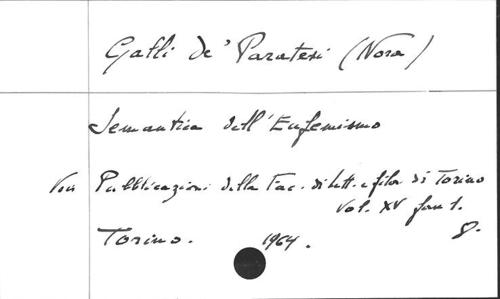 Galli de' Paratesi (Nora)
Semantica dell'Eufemismo
Pubblicazioni della Fac. di Lett. e filos. di Torino
Vol. XV fasc 1.
Torino. 1964. 8.